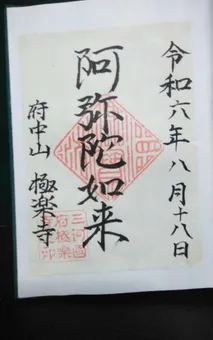 令和六年八月十八日
阿弥陀如来
府中山 極楽寺
三河国
府極楽